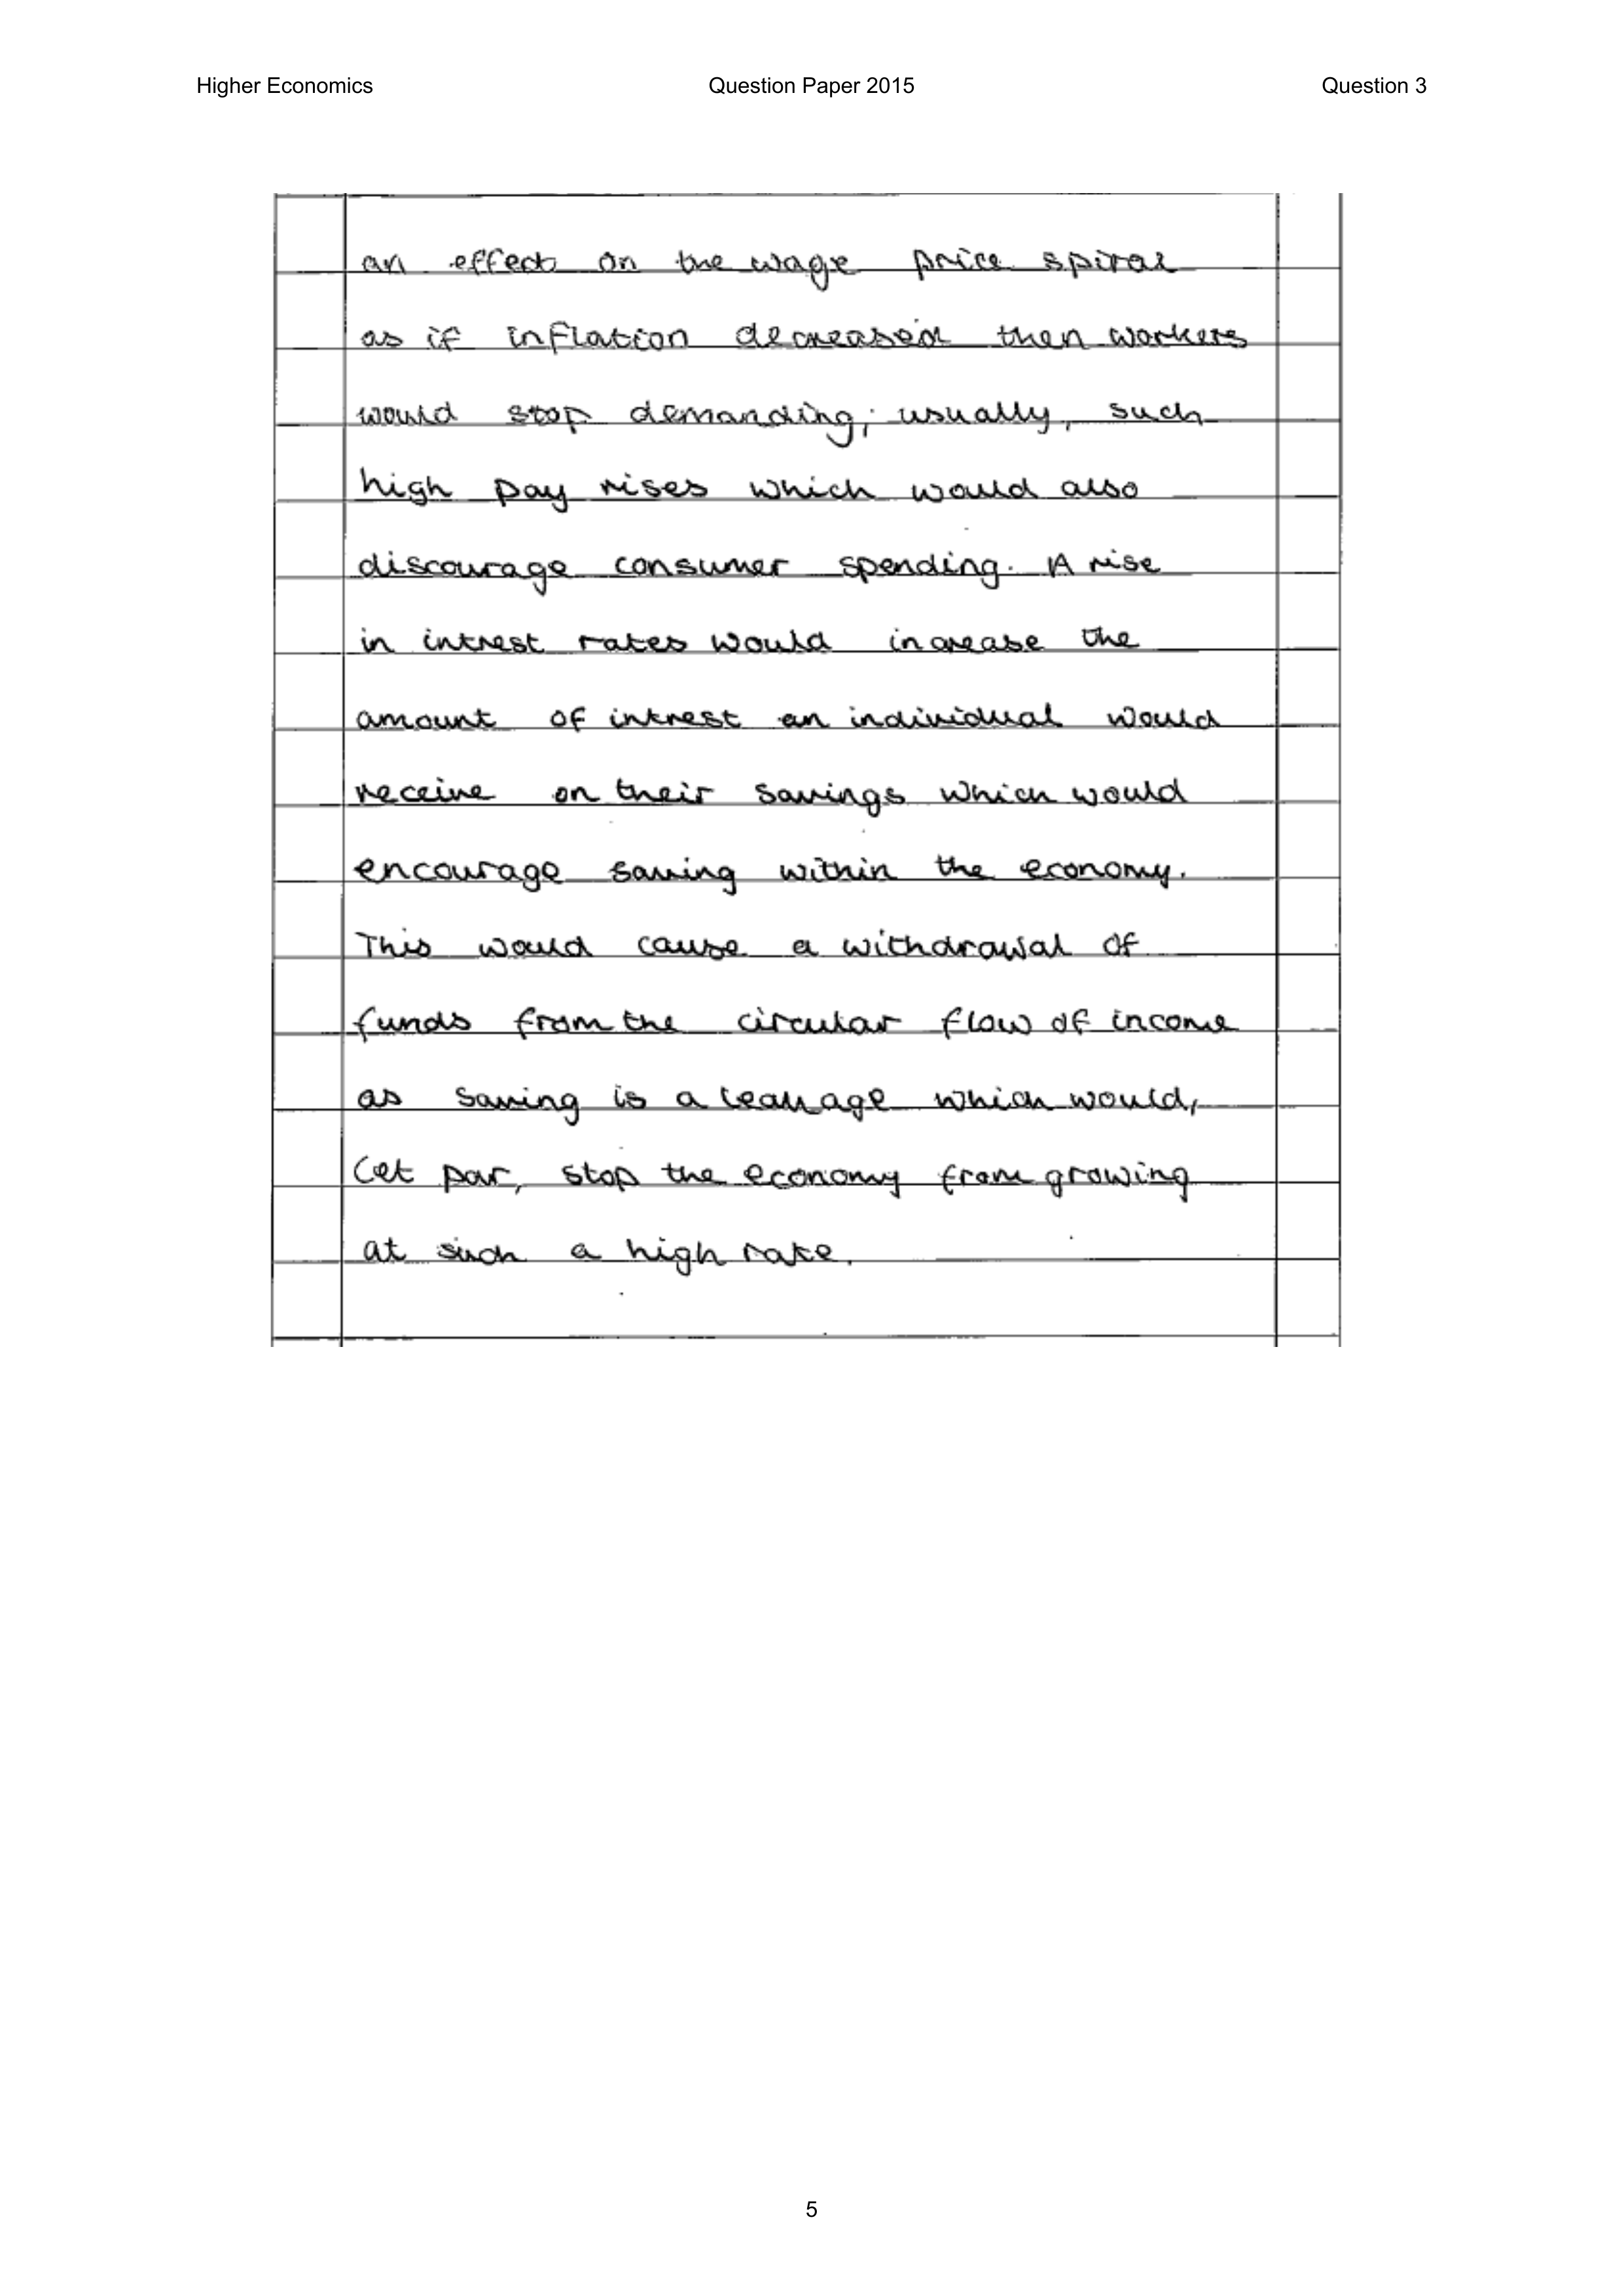 Higher Economics Question Paper 2015 Question 3
an effect on the wage price spiral
as if inflation decreased then workers
would stop demanding, usually, such
high pay rises which would also
discourage consumer spending. A rise
in intrest rates would increase the
amount of intrest an individual would
receive on their savings which would
encourage saving within the economy.
This would cause a withdrawal of
funds from the circular flow of income
as saving is a leakage which would,
Cet par, stop the economy from growing
at such a high rate.
5